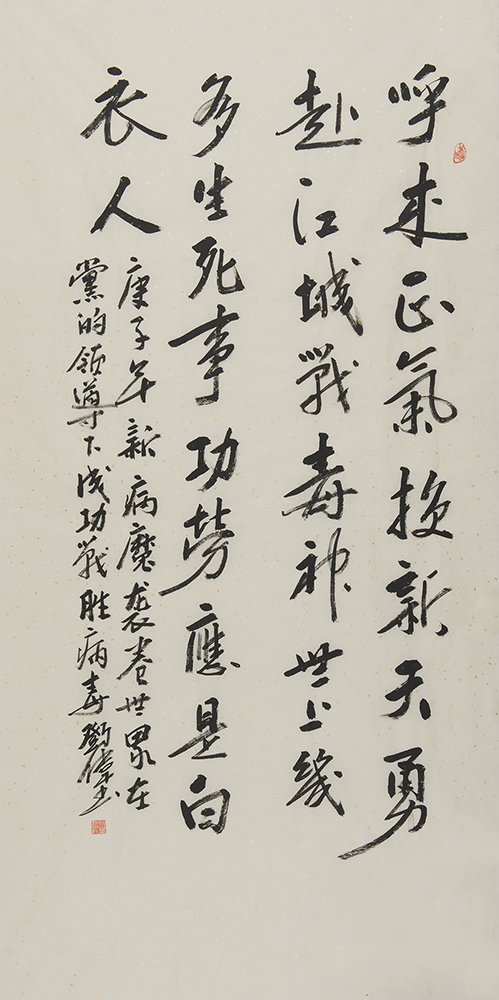 呼来正氣换新天勇
赴江城戰毒神世上幾
多生死事功勞應是白
衣人
庚子年新病魔袭卷世界在
黨的领導下成功戰胜病毒